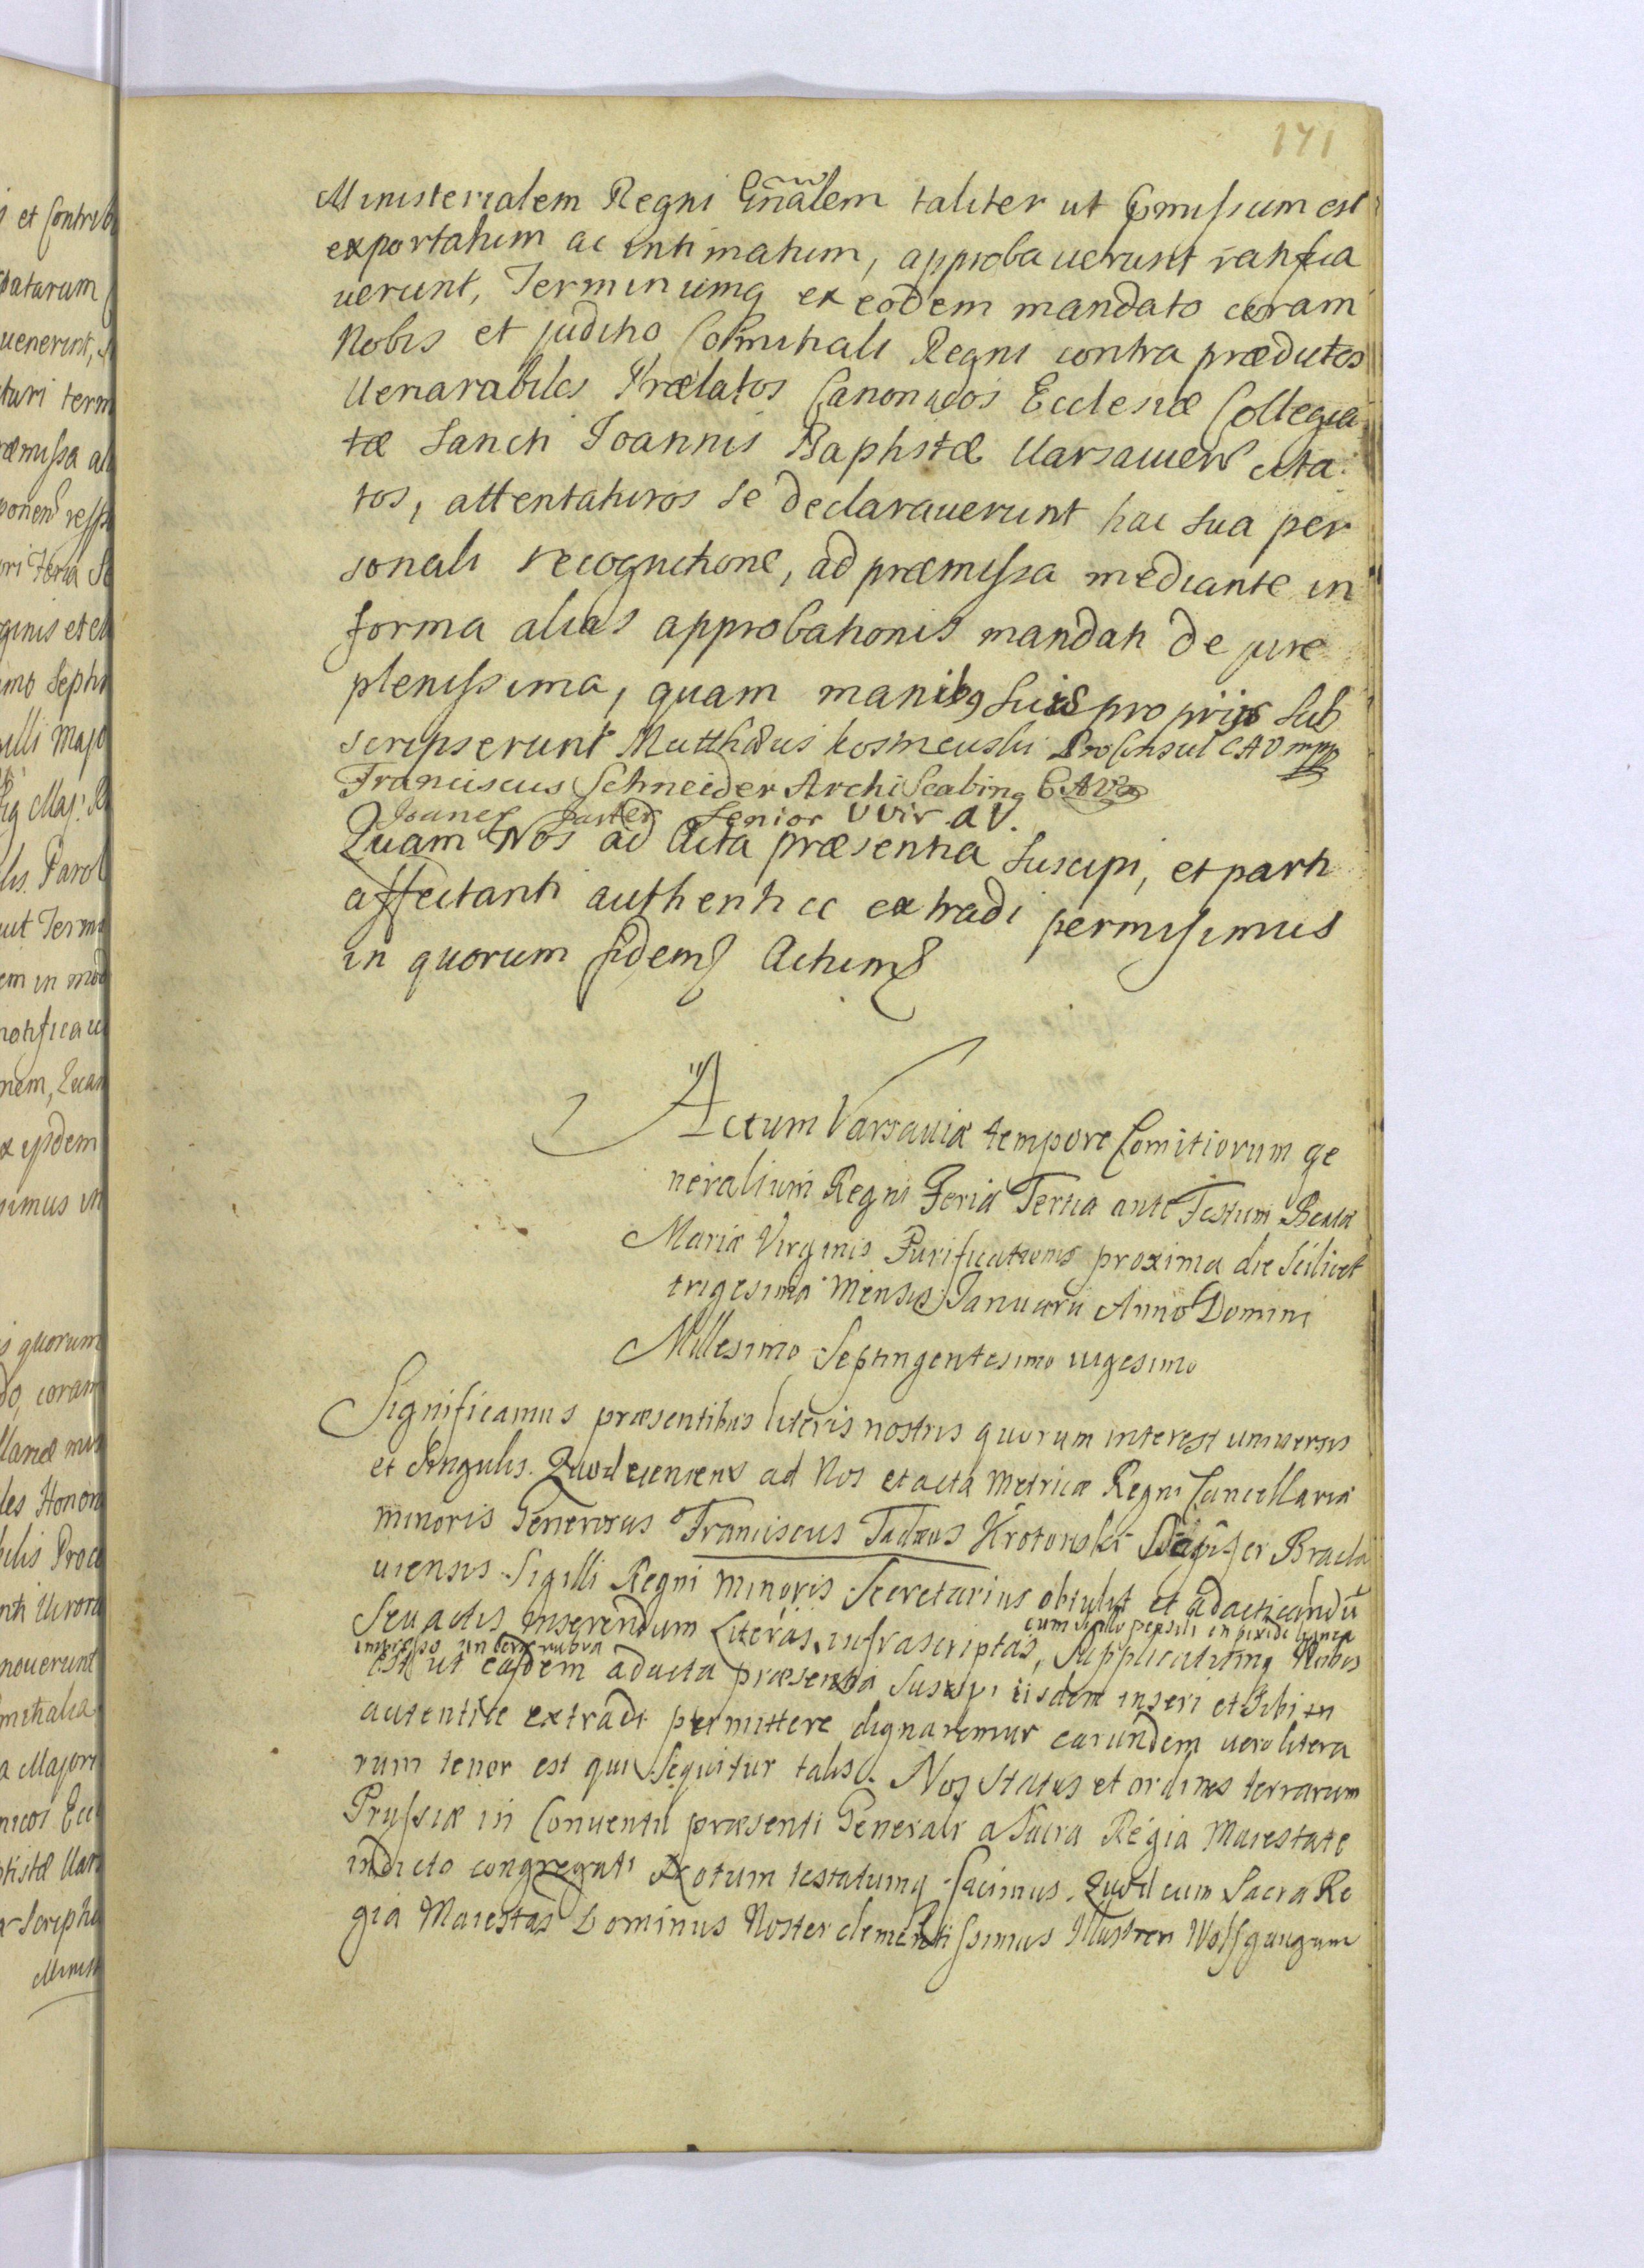 171
Ministerialem Regni Gnãlem taliter ut præmissum est
exportatum ac intimatum, approbauerunt ratifica
uerunt, Terminumq ex eodem mandato coram
Nobis et juditio Comitiali Regni contra prædictos
Uenarabiles Prælatos Canonicos Ecclesiæ Collegia
tæ Sancti Joannis Baptistæ Uarsauiens cita
tos, attentaturos se declarauerunt hac sua per
sonali recognitione, ad præmissa mediante in
forma alias approbationis mandati de jure
plenissima, quam manibq suis proprijs sub
scripserunt Matthæus Kosmeuski ProConsul CAV mpp
Franciscus Schneider ArchiScabinq CAV
Joanes Senior VVir. AV.
Quam Nos ad Acta præsentia suscipi, et parti
affectanti authentice extradi permisimus
in quorum fidem Actum
Actum Varsauiæ tempore Comitiorum ge
neralium Regni Feria Tertia ante Festum Beatæ
Mariæ Virginis Purificationis proxima die Scilicet
trigesima Mensis Januarii Anno Domini
Millesimo Septingentesimo uigesimo
Significamus præsentibus literis nostris quorum interest uniuersis
et Singulis. Quod ueniens ad Nos et acta Metricæ Regni Cancellariæ
minoris Generosus Franciscus Tadæus Krotowski Dapifer Bracla
uiensis Sigilli Regni Minoris Secretarius obtulit et ad acticandũ
cum sigillo pensili in pixide lignea
Seu actis inserendum Literas infrascriptas, Supplicatumq Nobis
impresso in cera rubra
est ut easdem ad acta præsentia suscipi iisdem inseri et Sibi in
autentice extradi permittere dignaremur earundem uero litera
rum tenor est qui sequitur talis. Nos Status et ordines terrarum
Prussiæ in Conuentu præsenti Generali a Sacra Regia Maiestate
indicto congregati Notum testatumq facimus. Quod cum Sacra Re
gia Maiestas Dominus Noster clementissimus Illustrem Wolfgangum